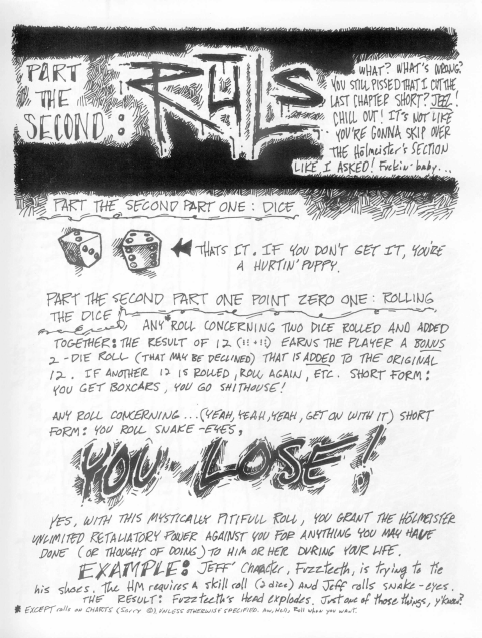 PART
THE
SECOND:
RULS
WHAT? WHAT'S WRONG?
YOU STILL PISSED THAT I CUT THE
LAST CHAPTER SHORT? JEEZ!
CHILL OUT! IT'S NOT LIKE
YOU'RE GONNA SKIP OVER
THE Hölmeister's SECTION
LIKE I ASKED! Fuckin' baby...
PART THE SECOND PART ONE: DICE
THATS IT. IF YOU DON'T GET IT, YOU'RE
A HURTIN' PUPPY.
PART THE SECOND PART ONE POINT ZERO ONE: ROLLING
THE DICE
ANY* ROLL CONCERNING TWO DICE ROLLED AND ADDED
TOGETHER: THE RESULT OF 12 (⁝⁝+⁝⁝) EARNS THE PLAYER A BONUS
2-DIE ROLL (THAT MAY BE DECLINED) THAT IS ADDED TO THE ORIGINAL
12. IF ANOTHER 12 IS ROLLED, ROLL AGAIN, ETC. SHORT FORM:
YOU GET BOXCARS, YOU GO SHITHOUSE!
ANY ROLL CONCERNING...(YEAH, YEAH, YEAH, GET ON WITH IT) SHORT
FORM: YOU ROLL SNAKE-EYES,
YOU LOSE!
YES, WITH THIS MYSTICALLY PITIFULL ROLL, YOU GRANT THE HÖLMEISTER
UNLIMITED RETALIATORY POWER AGAINST YOU FOR ANYTHING YOU MAY HAVE
DONE (OR THOUGHT OF DOING) TO HIM OR HER DURING YOUR LIFE.
EXAMPLE: JEFF' CHARACTER, FUZZTEETH, is trying to tie
his shoes. THE HM requires a skill roll (2 dice) And Jeff rolls snake-eyes.
THE RESULT: Fuzzteeth's Head explodes. Just one of those things, y'know?
* EXCEPT rolls on CHARTS (Sorry ☹). UNLESS OTHERWISE SPECIFIED. Aw, Hell, Roll when you want.